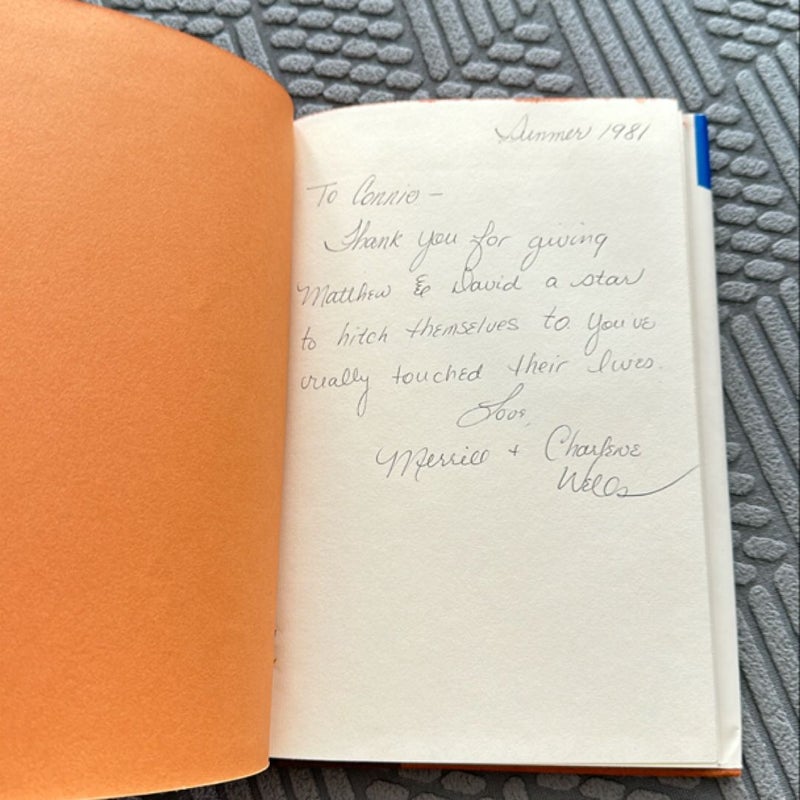 Summer 1981
To Connie -
Thank you for giving
Matthew & David a star
to hitch themselves to. You've
really touched their lives.
Love,
Merrill + Charlene
Wells